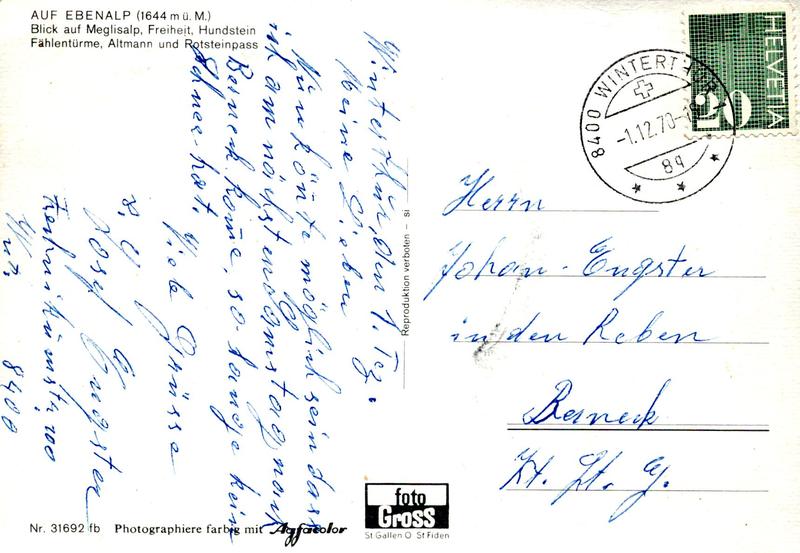 AUF EBENALP (1644 m ü. M.)
Blick auf Meglisalp, Freiheit, Hundstein
Fählentürme, Altmann und Rotsteinpass
Winterthur, den 1. Dez.
Meine Lieben
Nun könte möglich sein dass
ich am nächsten Samstag nach
Berneck kome, so lange kein
Schnee hat.
Viele Grüsse
Josef Engster
Wint.
8400
Reproduktion verboten – si
8400 WINTERTHUR 1
–1.12.70–
8q
HELVETIA
50
Herrn
Johan Engster
in den Reben
Berneck
Kt. St. G.
foto
Gross
St Gallen O St Fiden
Nr. 31692 fb Photographiere farbig mit Agfacolor